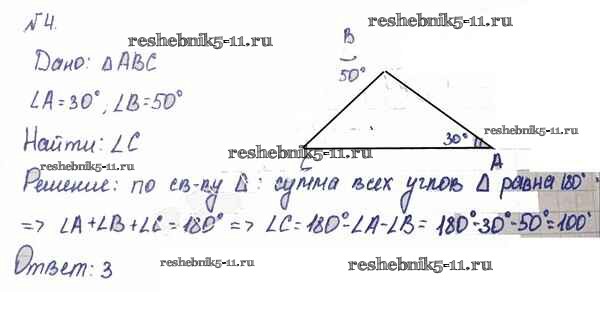 №4.
reshebnik5-11.ru
reshebnik5-11.ru
Дано: △ABC
B
50°
∠A=30°, ∠B=50°
Найти: ∠C
30°
reshebnik5-11.ru
C
reshebnik5-11.ru
A
reshebnik5-11.ru
Решение: по св-ву △: сумма всех углов △ равна 180°
=> ∠A+∠B+∠C=180° => ∠C=180°-∠A-∠B= 180°-30°-50°=100°
Ответ: 3
reshebnik5-11.ru
reshebnik5-11.ru